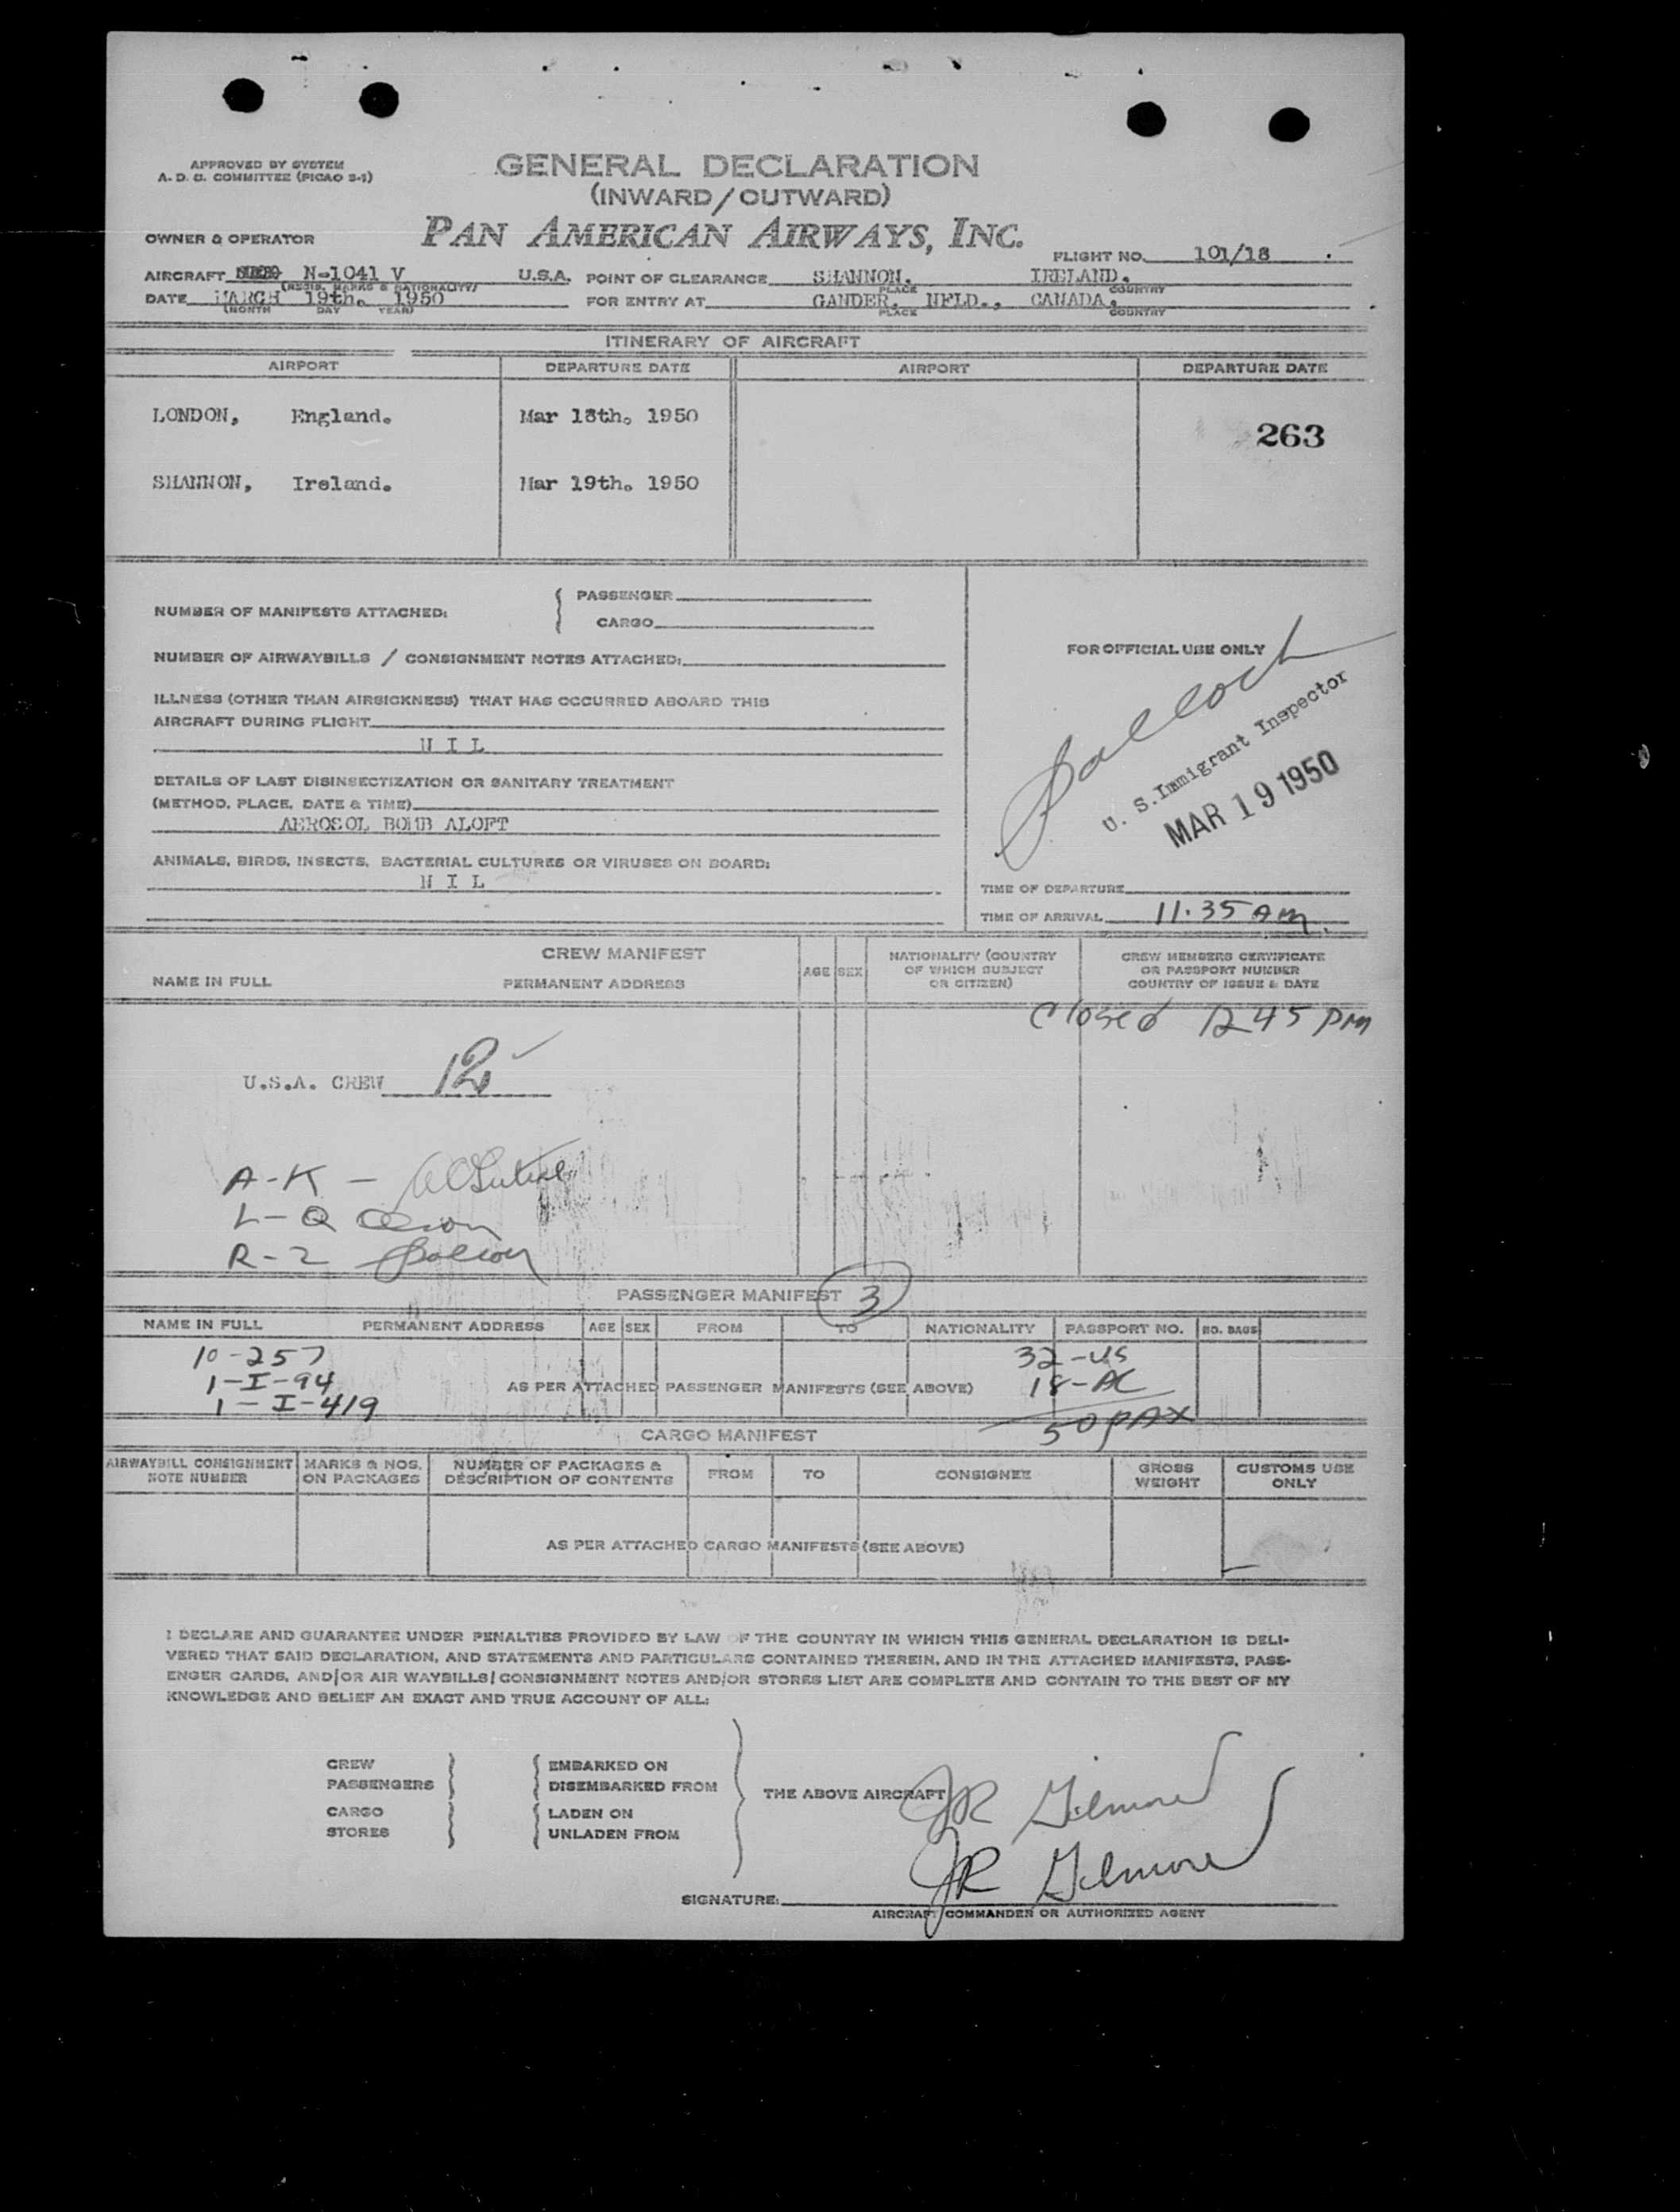 APPROVED BY SYSTEM
A. D. C. COMMITTEE (PICAO 2-1)
GENERAL DECLARATION
(INWARD/OUTWARD)
PAN AMERICAN AIRWAYS, INC.
OWNER & OPERATOR
FLIGHT NO. 101/18
AIRCRAFT N-1041 V U.S.A. POINT OF CLEARANCE SHANNON, IRELAND.
(REGIS. MARKS & NATIONALITY) PLACE COUNTRY
DATE MARCH 19th. 1950 FOR ENTRY AT GANDER, NFLD., CANADA.
(MONTH DAY YEAR) PLACE COUNTRY
ITINERARY OF AIRCRAFT
AIRPORT DEPARTURE DATE AIRPORT DEPARTURE DATE
LONDON, England. Mar 18th. 1950
263
SHANNON, Ireland. Mar 19th. 1950
NUMBER OF MANIFESTS ATTACHED: PASSENGER
CARGO
NUMBER OF AIRWAYBILLS / CONSIGNMENT NOTES ATTACHED:
ILLNESS (OTHER THAN AIRSICKNESS) THAT HAS OCCURRED ABOARD THIS
AIRCRAFT DURING FLIGHT
N I L
DETAILS OF LAST DISINSECTIZATION OR SANITARY TREATMENT
(METHOD, PLACE, DATE & TIME)
AEROSOL BOMB ALOFT
ANIMALS, BIRDS, INSECTS, BACTERIAL CULTURES OR VIRUSES ON BOARD:
N I L
FOR OFFICIAL USE ONLY
U. S. Immigrant Inspector
MAR 19 1950
TIME OF DEPARTURE
TIME OF ARRIVAL 11.35 AM.
CREW MANIFEST
NAME IN FULL PERMANENT ADDRESS AGE SEX
NATIONALITY (COUNTRY
OF WHICH SUBJECT
OR CITIZEN)
CREW MEMBERS CERTIFICATE
OR PASSPORT NUMBER
COUNTRY OF ISSUE & DATE
Closed 1245 PM
U.S.A. CREW 12
A-K -
L-Q
R-Z
PASSENGER MANIFEST 3
NAME IN FULL PERMANENT ADDRESS AGE SEX FROM TO NATIONALITY PASSPORT NO. NO. BAGS
10-257 32-US
1-I-94 AS PER ATTACHED PASSENGER MANIFESTS (SEE ABOVE) 18-AC
1-I-419 50 PAX
CARGO MANIFEST
AIRWAYBILL CONSIGNMENT
NOTE NUMBER
MARKS & NOS.
ON PACKAGES
NUMBER OF PACKAGES &
DESCRIPTION OF CONTENTS
FROM TO CONSIGNEE
GROSS
WEIGHT
CUSTOMS USE
ONLY
AS PER ATTACHED CARGO MANIFESTS (SEE ABOVE)
I DECLARE AND GUARANTEE UNDER PENALTIES PROVIDED BY LAW OF THE COUNTRY IN WHICH THIS GENERAL DECLARATION IS DELI-
VERED THAT SAID DECLARATION, AND STATEMENTS AND PARTICULARS CONTAINED THEREIN, AND IN THE ATTACHED MANIFESTS, PASS-
ENGER CARDS, AND/OR AIR WAYBILLS/CONSIGNMENT NOTES AND/OR STORES LIST ARE COMPLETE AND CONTAIN TO THE BEST OF MY
KNOWLEDGE AND BELIEF AN EXACT AND TRUE ACCOUNT OF ALL:
CREW EMBARKED ON
PASSENGERS DISEMBARKED FROM
THE ABOVE AIRCRAFT JR Gilmore
CARGO LADEN ON
STORES UNLADEN FROM
JR Gilmore
SIGNATURE:
AIRCRAFT COMMANDER OR AUTHORIZED AGENT